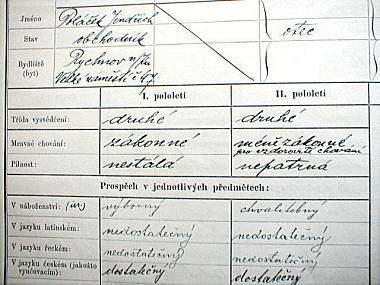 Jméno Poláček Jindřich
otec
Stav obchodník
Bydliště Rychnov n/Kn.
(byt) Velké náměstí č 47
I. pololetí II. pololetí
Třída vysvědčení: druhé druhé
Mravné chování: zákonné méně zákonné
pro vzdorovité chování
Pilnost: nestálá nepatrná
Prospěch v jednotlivých předmětech:
V náboženství: výborný chvalitebný
V jazyku latinském: nedostatečný nedostatečný
V jazyku řeckém: nedostatečný nedostatečný
V jazyku českém (jakožto
vyučovacím): dostatečný dostatečný